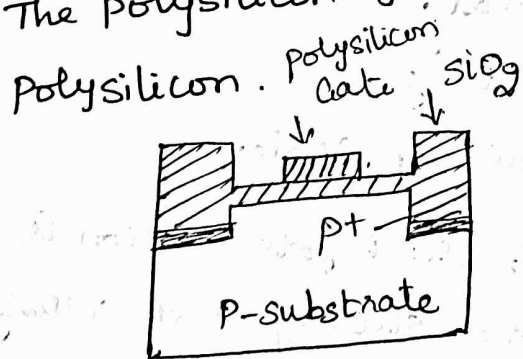 The polysilicon
polysilicon.
polysilicon
Gate
SiO2
p+
P-substrate